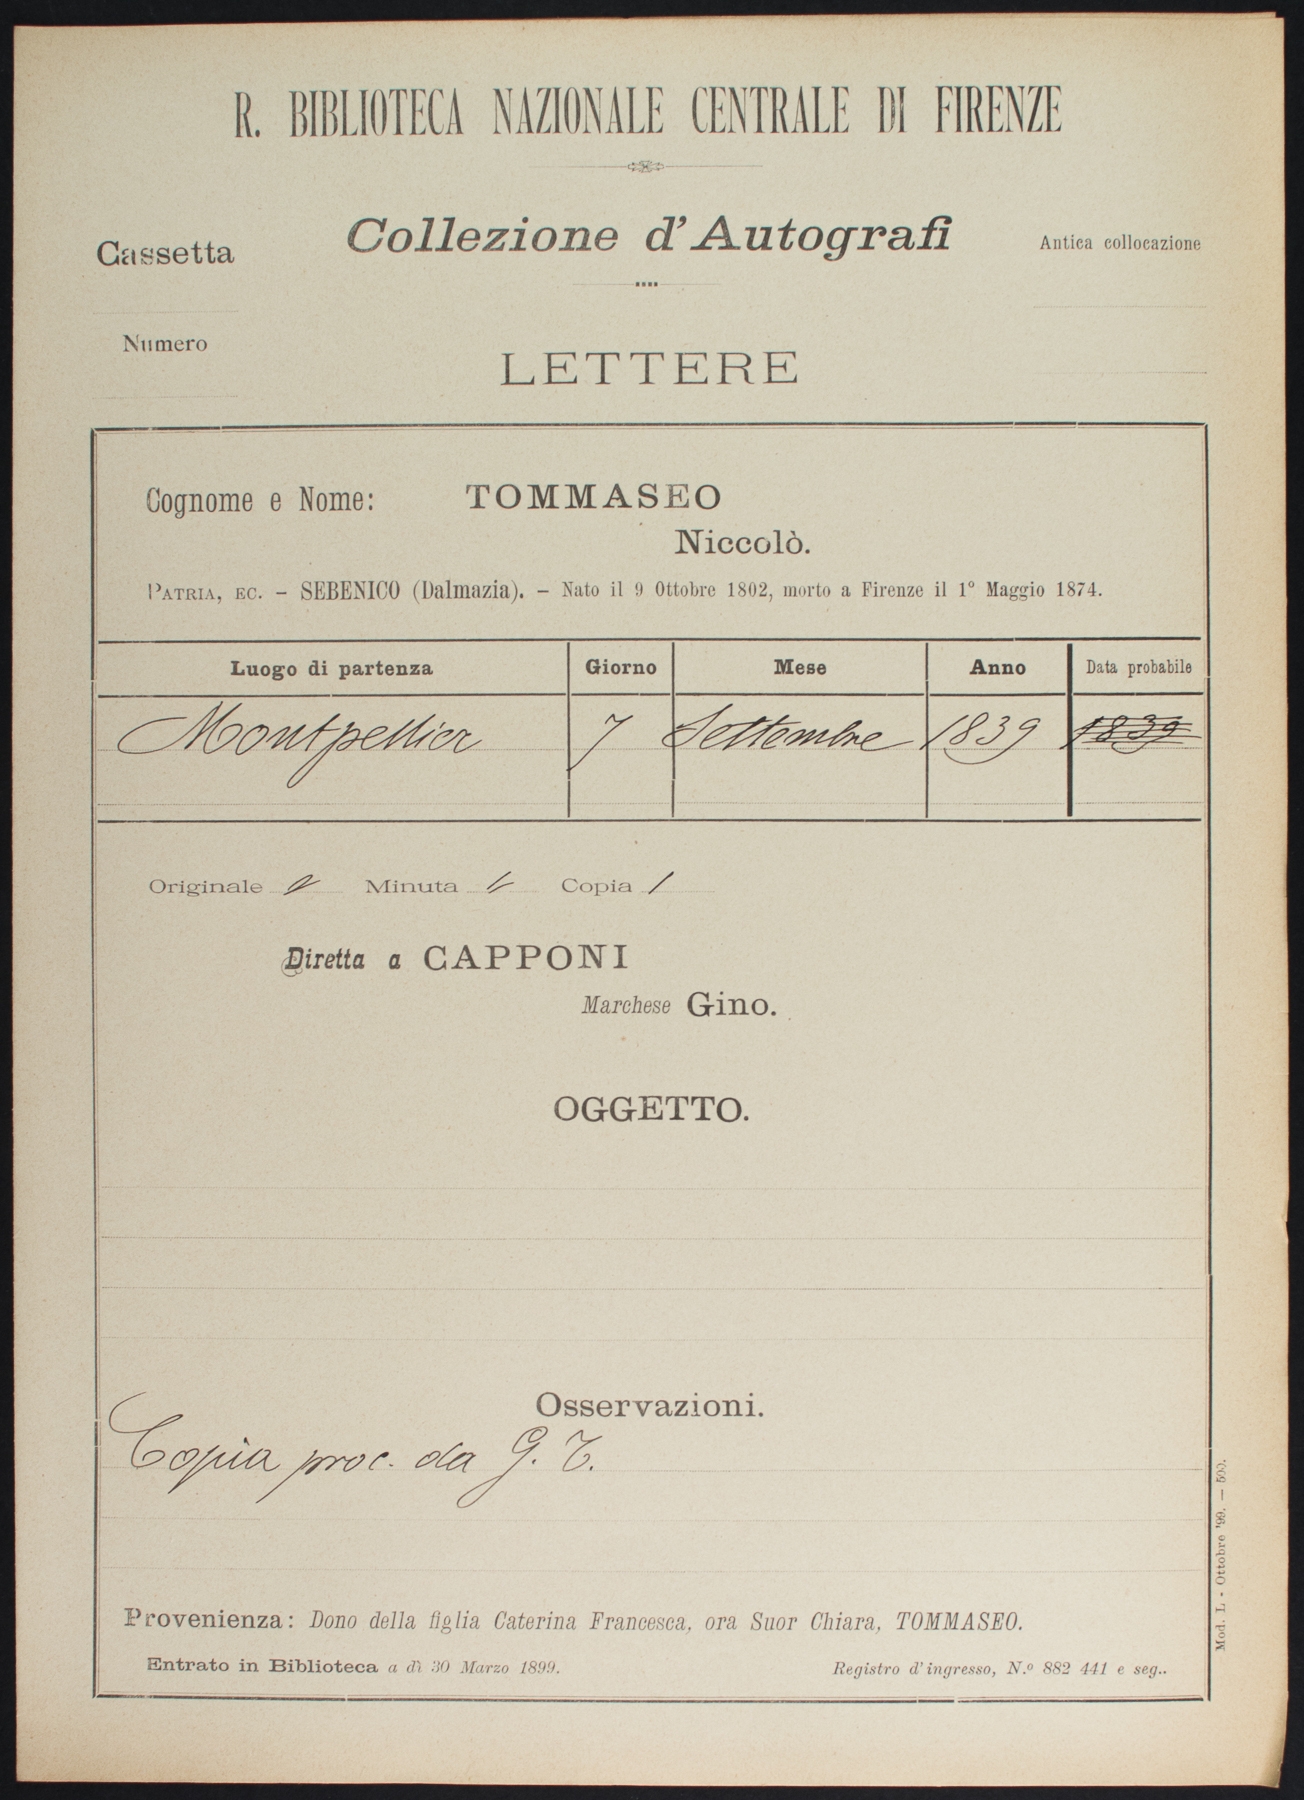 R. BIBLIOTECA NAZIONALE CENTRALE DI FIRENZE
Cassetta
Collezione d'Autografi
Antica collocazione
Numero
LETTERE
Cognome e Nome: TOMMASEO
Niccolò.
PATRIA, EC. - SEBENICO (Dalmazia). - Nato il 9 Ottobre 1802, morto a Firenze il 1° Maggio 1874.
Luogo di partenza Giorno Mese Anno Data probabile
Montpellier 7 Settembre 1839 1839
Originale Minuta Copia 1
Diretta a CAPPONI
Marchese Gino.
OGGETTO.
Osservazioni.
Copia proc. da G. T.
Provenienza: Dono della figlia Caterina Francesca, ora Suor Chiara, TOMMASEO.
Entrato in Biblioteca a dì 30 Marzo 1899. Registro d'ingresso, N.º 882 441 e seg..
Mod. L - Ottobre '99. — 500.